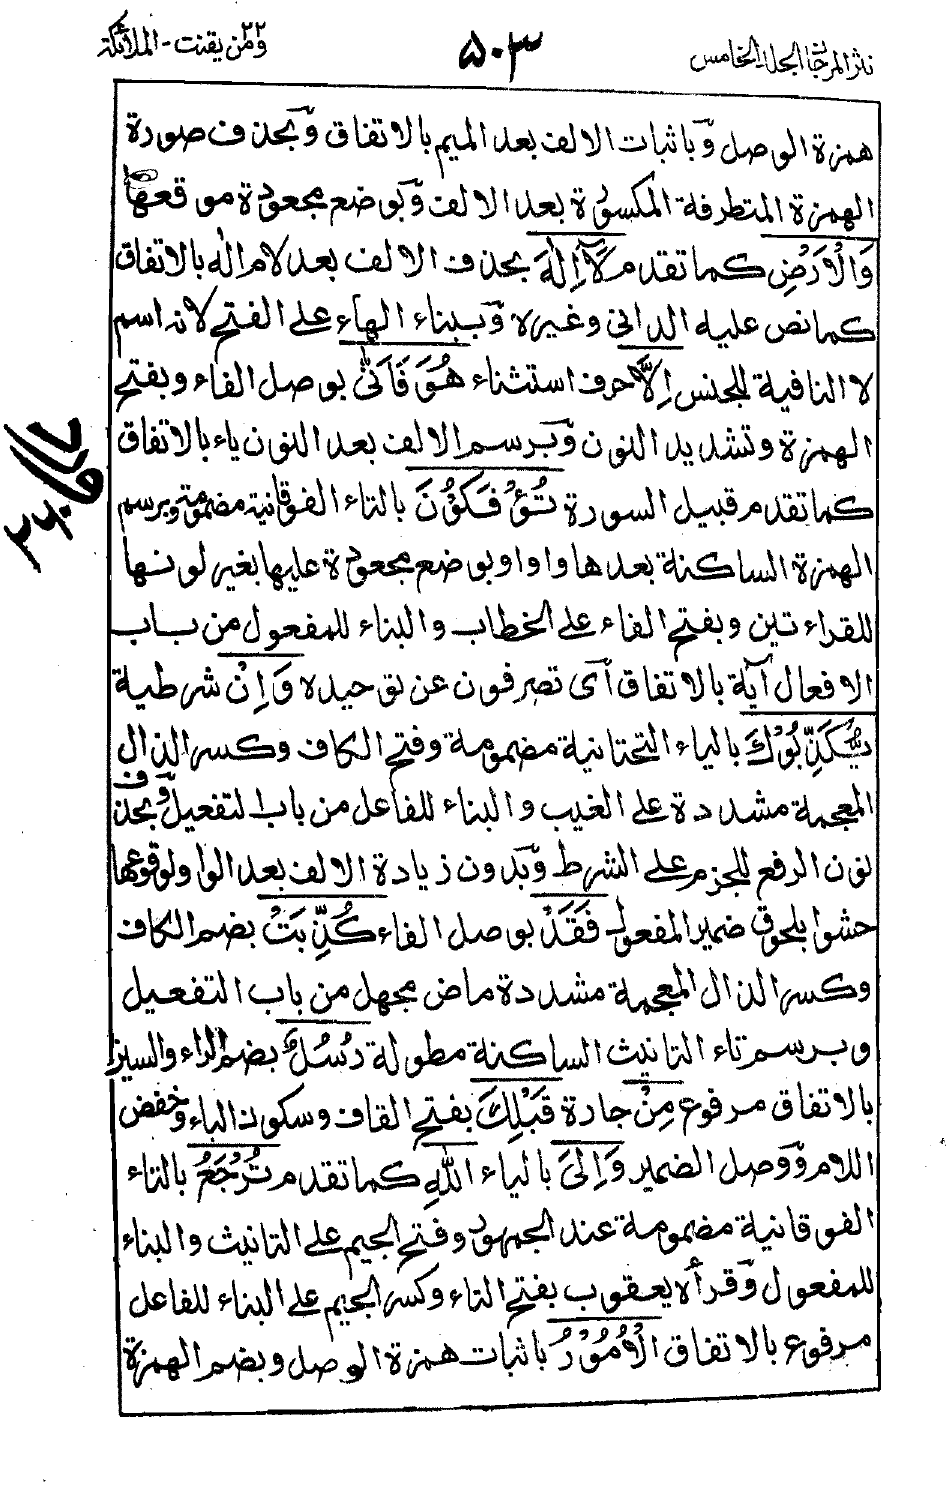 نثر المرجان الجلد الخامس
۵۰۳
ومن یقنت ۲۲ - الملائكة
همزة الوصل وباثبات الالف بعد الميم بالاتفاق وبحذف صورة
الهمزة المتطرفة المكسورة بعد الالف وبوضع مجعودة موقعها
وَالْأَرْضِ كما تقدم لَآ إِلٰهَ بحذف الالف بعد لام اله بالاتفاق
كما نص عليه الدانى وغيره وببناء الهاء على الفتح لانه اسم
لا النافية للجنس اِلَّا حرف استثناء هُوَ فَاَنّٰى بوصل الفاء وبفتح
الهمزة وتشديد النون وبرسم الالف بعد النون ياء بالاتفاق
كما تقدم قبيل السورة تُؤْفَكُوْنَ بالتاء الفوقانية مضمومة وبرسم
الهمزة الساكنة بعدها واوا وبوضع مجعودة عليها بغير لونها
للقراءتين وبفتح الفاء على الخطاب والبناء للمفعول من باب
الافعال آية بالاتفاق أى تصرفون عن توحيده وَاِنْ شرطية
يُّكَذِّبُوْكَ بالياء التحتانية مضمومة وفتح الكاف وكسر الذال
المعجمة مشددة على الغيب والبناء للفاعل من باب التفعيل وبحذف
نون الرفع للجزم على الشرط وبدون زيادة الالف بعد الواو لوقوعها
حشوا بلحوق ضمير المفعول فَقَدْ بوصل الفاء كُذِّبَتْ بضم الكاف
وكسر الذال المعجمة مشددة ماض مجهل من باب التفعيل
وبرسم تاء التانيث الساكنة مطولة رُسُلٌ بضم الراء والسين
بالاتفاق مرفوع مِنْ جادة قَبْلِكَ بفتح القاف وسكون الباء وخفض
اللام ووصل الضمير وَاِلَى بالياء اللّٰهِ كما تقدم تُرْجَعُ بالتاء
الفوقانية مضمومة عند الجمهور وفتح الجيم على التانيث والبناء
للمفعول وقرأه يعقوب بفتح التاء وكسر الجيم على البناء للفاعل
مرفوع بالاتفاق الْاُمُوْرُ باثبات همزة الوصل وبضم الهمزة